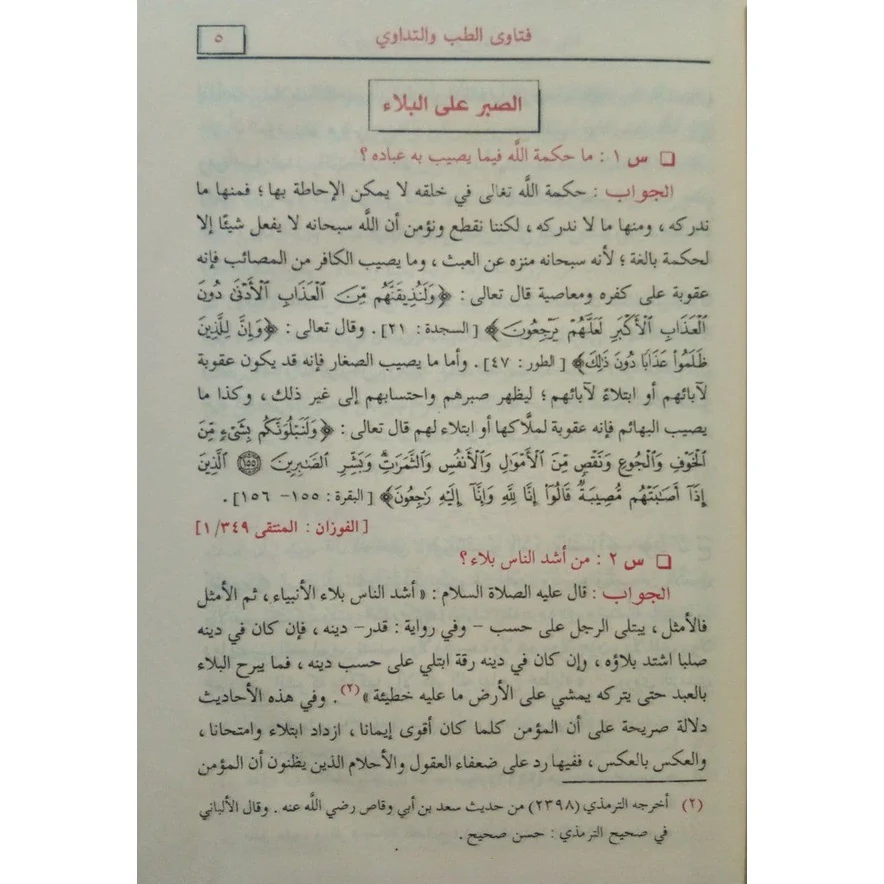 فتاوى الطب والتداوي
٥
الصبر على البلاء
❑ س ١ : ما حكمة اللَّه فيما يصيب به عباده ؟
الجواب : حكمة اللَّه تعالى في خلقه لا يمكن الإحاطة بها ؛ فمنها ما
ندركه ، ومنها ما لا ندركه ، لكننا نقطع ونؤمن أن اللَّه سبحانه لا يفعل شيئًا إلا
لحكمة بالغة ؛ لأنه سبحانه منزه عن العبث ، وما يصيب الكافر من المصائب فإنه
عقوبة على كفره ومعاصية قال تعالى : ﴿وَلَنُذِيقَنَّهُم مِّنَ ٱلْعَذَابِ ٱلْأَدْنَىٰ دُونَ
ٱلْعَذَابِ ٱلْأَكْبَرِ لَعَلَّهُمْ يَرْجِعُونَ﴾ [ السجدة : ٢١] . وقال تعالى : ﴿وَإِنَّ لِلَّذِينَ
ظَلَمُوا۟ عَذَابًا دُونَ ذَٰلِكَ﴾ [ الطور : ٤٧] . وأما ما يصيب الصغار فإنه قد يكون عقوبة
لآبائهم أو ابتلاءً لآبائهم ؛ ليظهر صبرهم واحتسابهم إلى غير ذلك ، وكذا ما
يصيب البهائم فإنه عقوبة لملَّاكها أو ابتلاء لهم قال تعالى : ﴿وَلَنَبْلُوَنَّكُم بِشَىْءٍ مِّنَ
ٱلْخَوْفِ وَٱلْجُوعِ وَنَقْصٍ مِّنَ ٱلْأَمْوَٰلِ وَٱلْأَنفُسِ وَٱلثَّمَرَٰتِ ۗ وَبَشِّرِ ٱلصَّٰبِرِينَ ﴿١٥٥﴾ ٱلَّذِينَ
إِذَآ أَصَٰبَتْهُم مُّصِيبَةٌ قَالُوٓا۟ إِنَّا لِلَّهِ وَإِنَّآ إِلَيْهِ رَٰجِعُونَ﴾ [البقرة : ١٥٥- ١٥٦] .
[ الفوزان : المنتقى ١/٣٤٩]
❑ س ٢ : من أشد الناس بلاء ؟
الجواب : قال عليه الصلاة السلام : « أشد الناس بلاء الأنبياء ، ثم الأمثل
فالأمثل ، يبتلى الرجل على حسب – وفي رواية : قدر– دينه ، فإن كان في دينه
صلبا اشتد بلاؤه ، وإن كان في دينه رقة ابتلي على حسب دينه ، فما يبرح البلاء
بالعبد حتى يتركه يمشي على الأرض ما عليه خطيئة »(٢) . وفي هذه الأحاديث
دلالة صريحة على أن المؤمن كلما كان أقوى إيمانا ، ازداد ابتلاء وامتحانا ،
والعكس بالعكس ، ففيها رد على ضعفاء العقول والأحلام الذين يظنون أن المؤمن
(٢) أخرجه الترمذي (٢٣٩٨) من حديث سعد بن أبي وقاص رضي اللَّه عنه . وقال الألباني
في صحيح الترمذي : حسن صحيح .